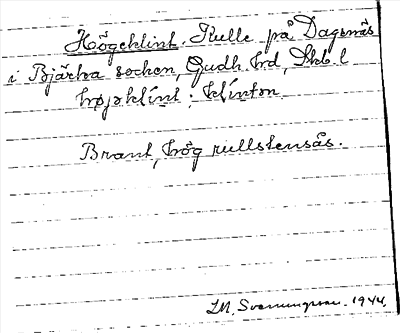 Högeklint. Kulle på Dagsnäs
i Bjärka socken, Gudh. hd, Skb. l
højəklínt : klínton
Brant, hög rullstensås.
I.M. Svenungsson. 1944.